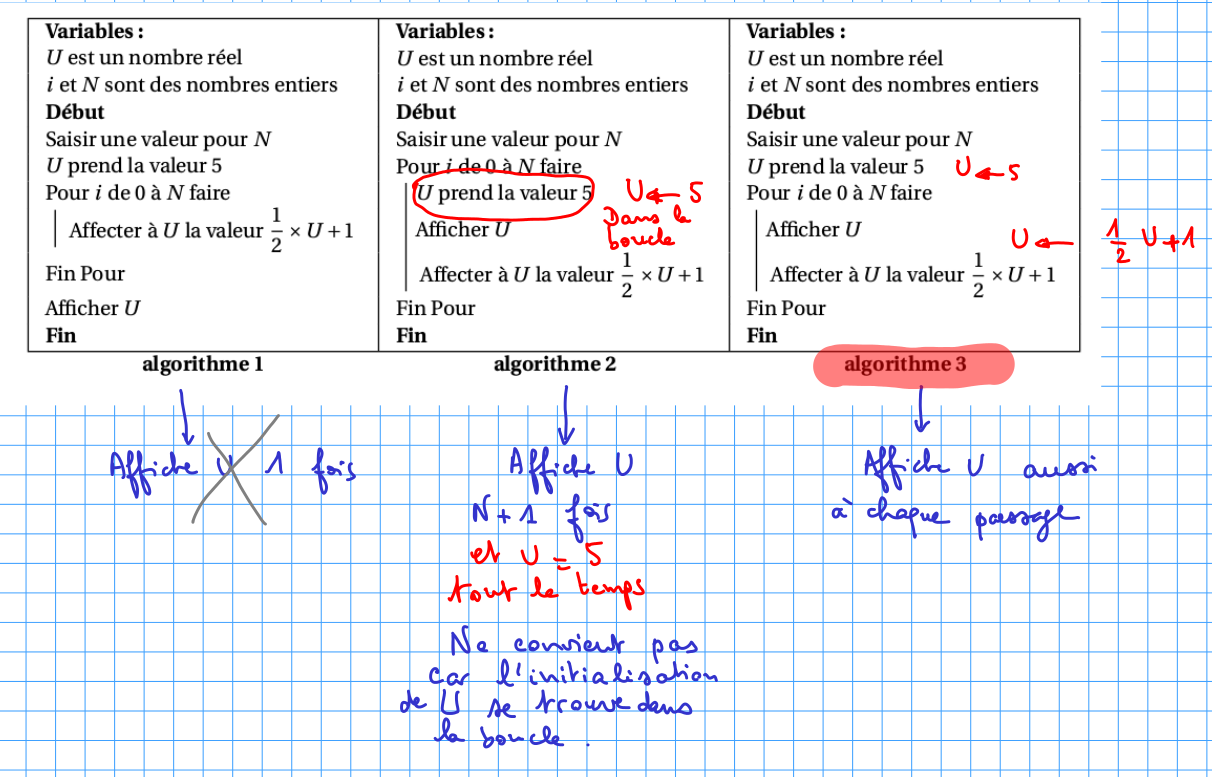 Variables :
U est un nombre réel
i et N sont des nombres entiers
Début
Saisir une valeur pour N
U prend la valeur 5
Pour i de 0 à N faire
Affecter à U la valeur 1/2 × U + 1
Fin Pour
Afficher U
Fin
algorithme 1
Affiche U 1 fois
Variables :
U est un nombre réel
i et N sont des nombres entiers
Début
Saisir une valeur pour N
Pour i de 0 à N faire
U prend la valeur 5
U ← 5
Dans la
boucle
Afficher U
Affecter à U la valeur 1/2 × U + 1
Fin Pour
Fin
algorithme 2
Affiche U
N + 1 fois
et U = 5
tout le temps
Ne convient pas
car l'initialisation
de U se trouve dans
la boucle .
Variables :
U est un nombre réel
i et N sont des nombres entiers
Début
Saisir une valeur pour N
U prend la valeur 5 U ← 5
Pour i de 0 à N faire
Afficher U
U ← 1/2 U + 1
Affecter à U la valeur 1/2 × U + 1
Fin Pour
Fin
algorithme 3
Affiche U aussi
à chaque passage